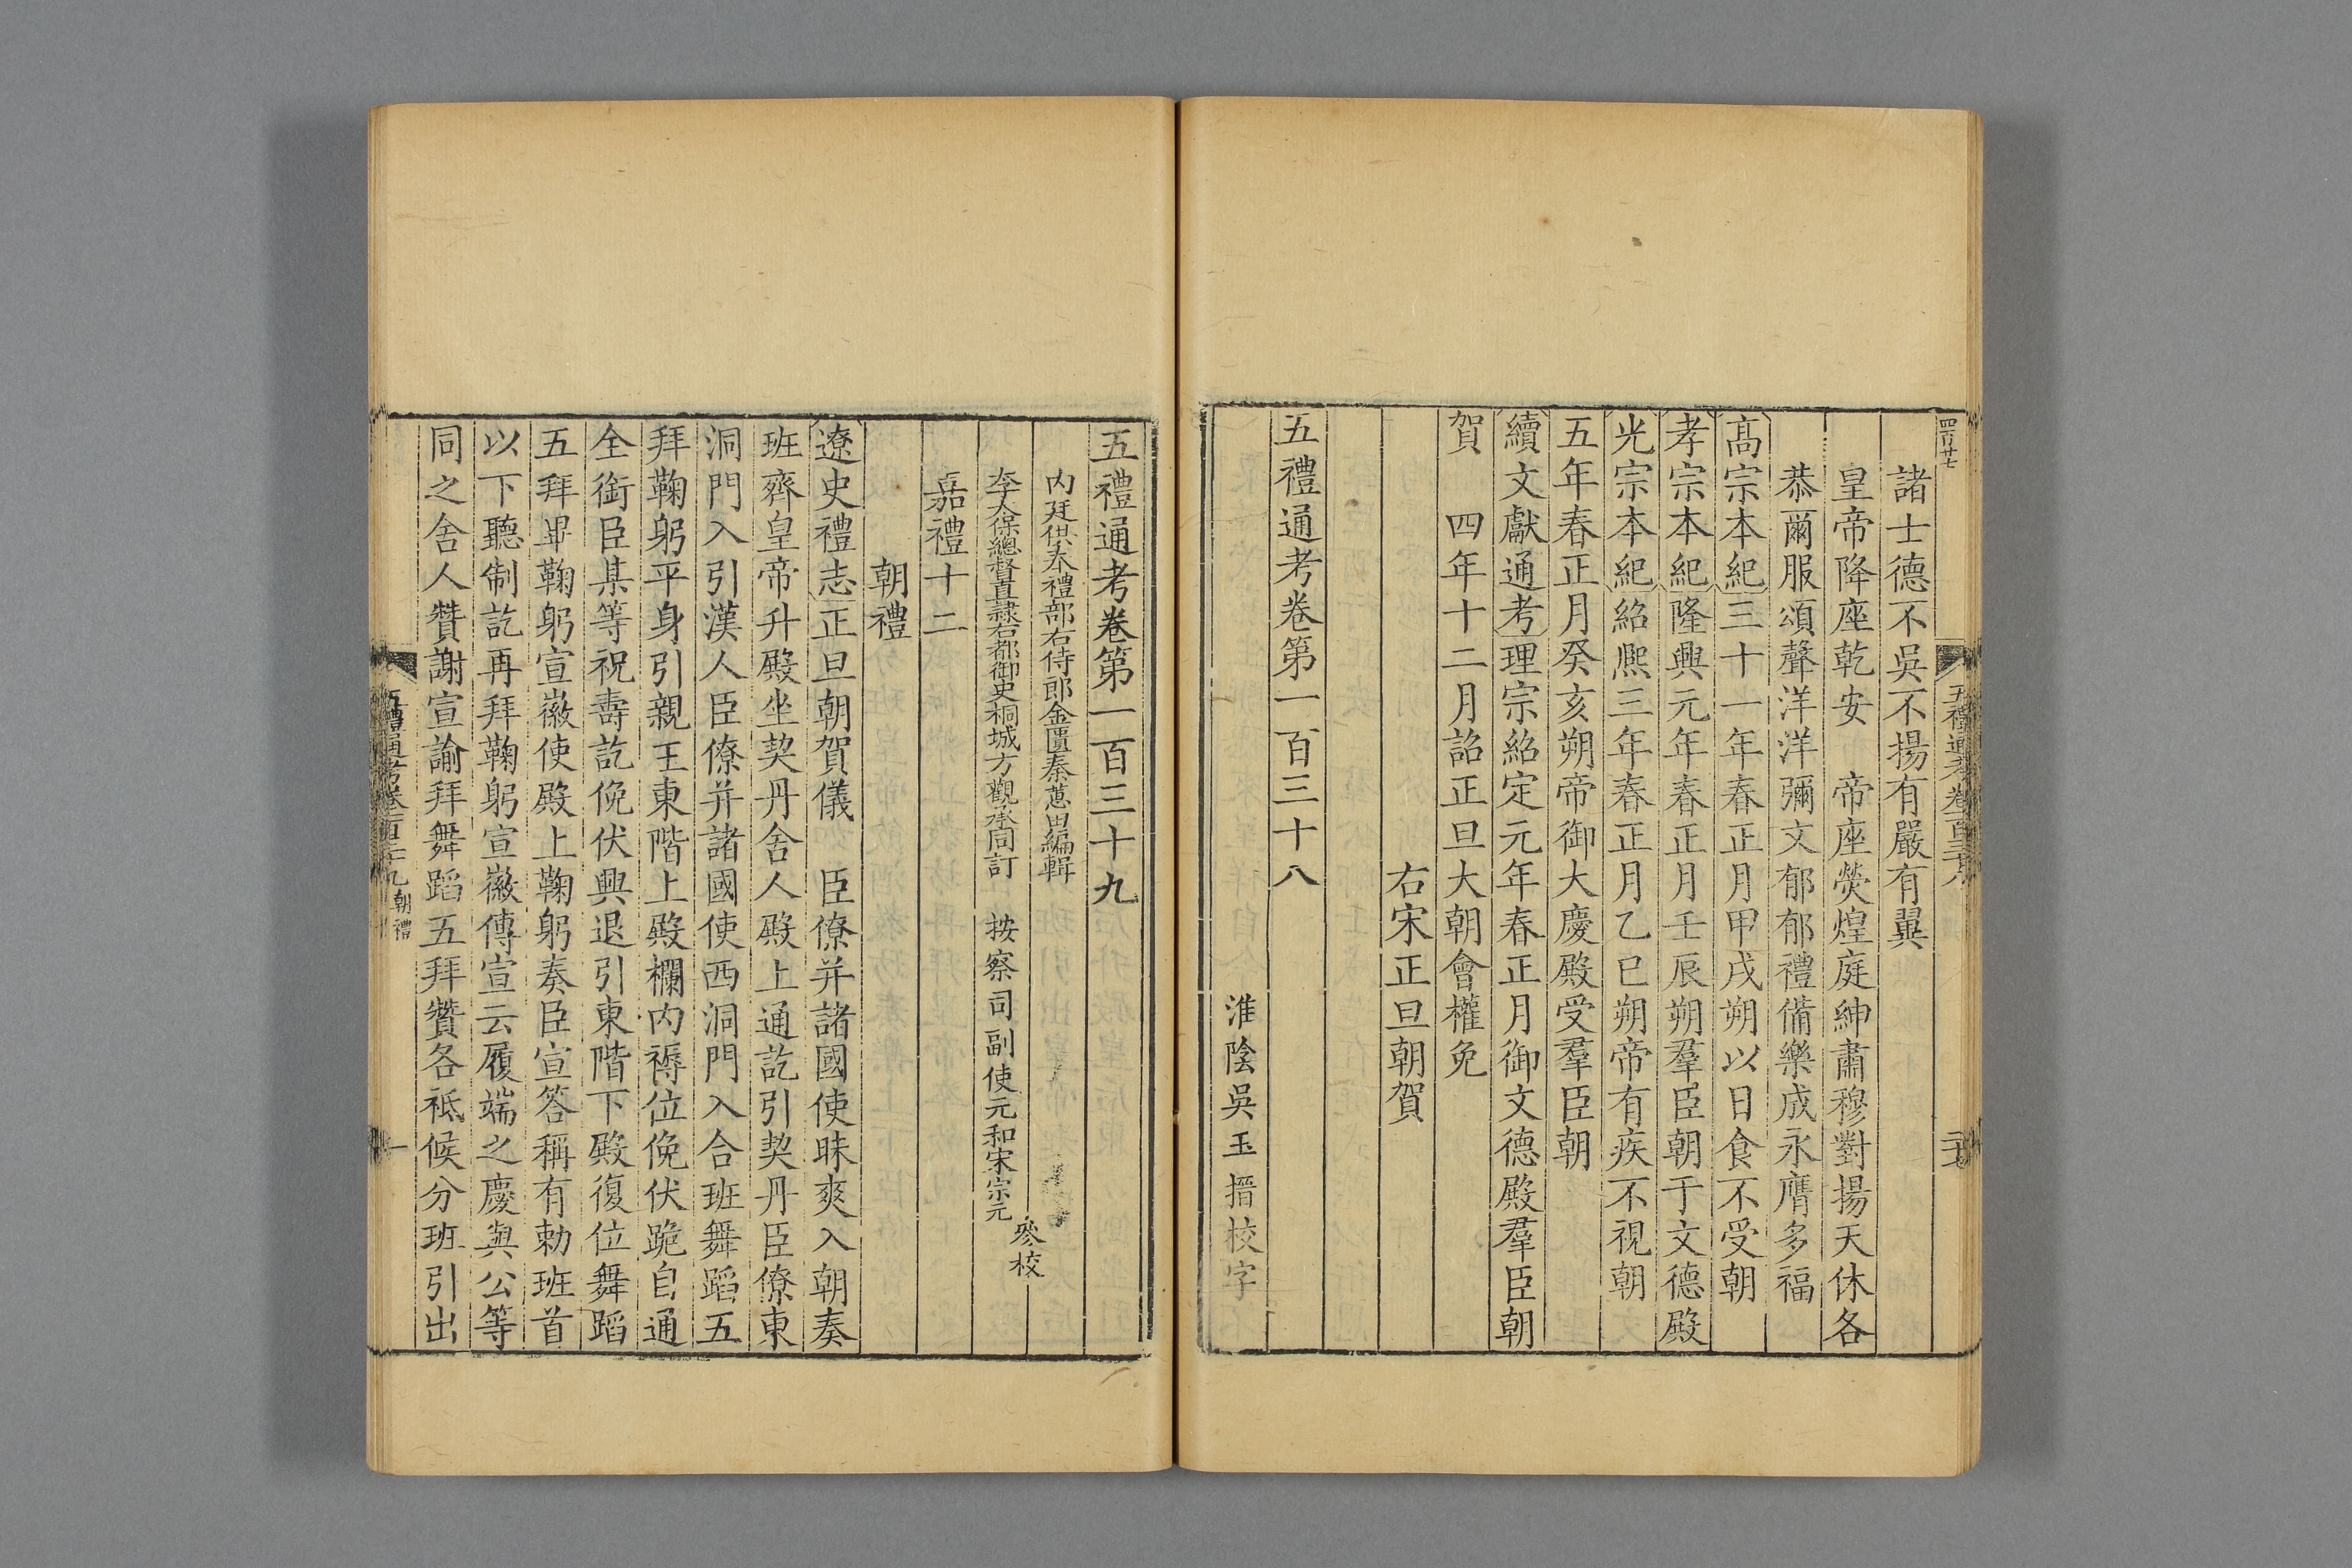 四百廿七
五禮通考卷一百三十八
諸士德不吳不揚有嚴有翼
皇帝降座乾安　帝座熒煌庭紳肅穆對揚天休各
恭爾服頌聲洋洋彌文郁郁禮備樂成永膺多福
髙宗本紀三十一年春正月甲戌朔以日食不受朝
孝宗本紀隆興元年春正月壬辰朔羣臣朝于文德殿
光宗本紀紹熈三年春正月乙巳朔帝有疾不視朝
五年春正月癸亥朔帝御大慶殿受羣臣朝
續文獻通考理宗紹定元年春正月御文德殿羣臣朝
賀　四年十二月詔正旦大朝會權免
右宋正旦朝賀
五禮通考卷第一百三十八
淮陰吳玉搢校字
五禮通考卷第一百三十九
内廷供奉禮部右侍郎金匱秦蕙田編輯
太子太保總督直隸右都御史桐城方觀承同訂　按察司副使元和宋宗元
參校
嘉禮十二
朝禮
遼史禮志正旦朝賀儀　臣僚并諸國使昧爽入朝奏
班齊皇帝升殿坐契丹舍人殿上通訖引契丹臣僚東
洞門入引漢人臣僚并諸國使西洞門入合班舞蹈五
拜鞠躬平身引親王東階上殿欄内褥位俛伏跪自通
全銜臣某等祝壽訖俛伏興退引東階下殿復位舞蹈
五拜畢鞠躬宣徽使殿上鞠躬奏臣宣答稱有勅班首
以下聽制訖再拜鞠躬宣徽傳宣云履端之慶與公等
同之舍人贊謝宣諭拜舞蹈五拜贊各祗候分班引出
五禮通考卷一百三十九 朝禮
一